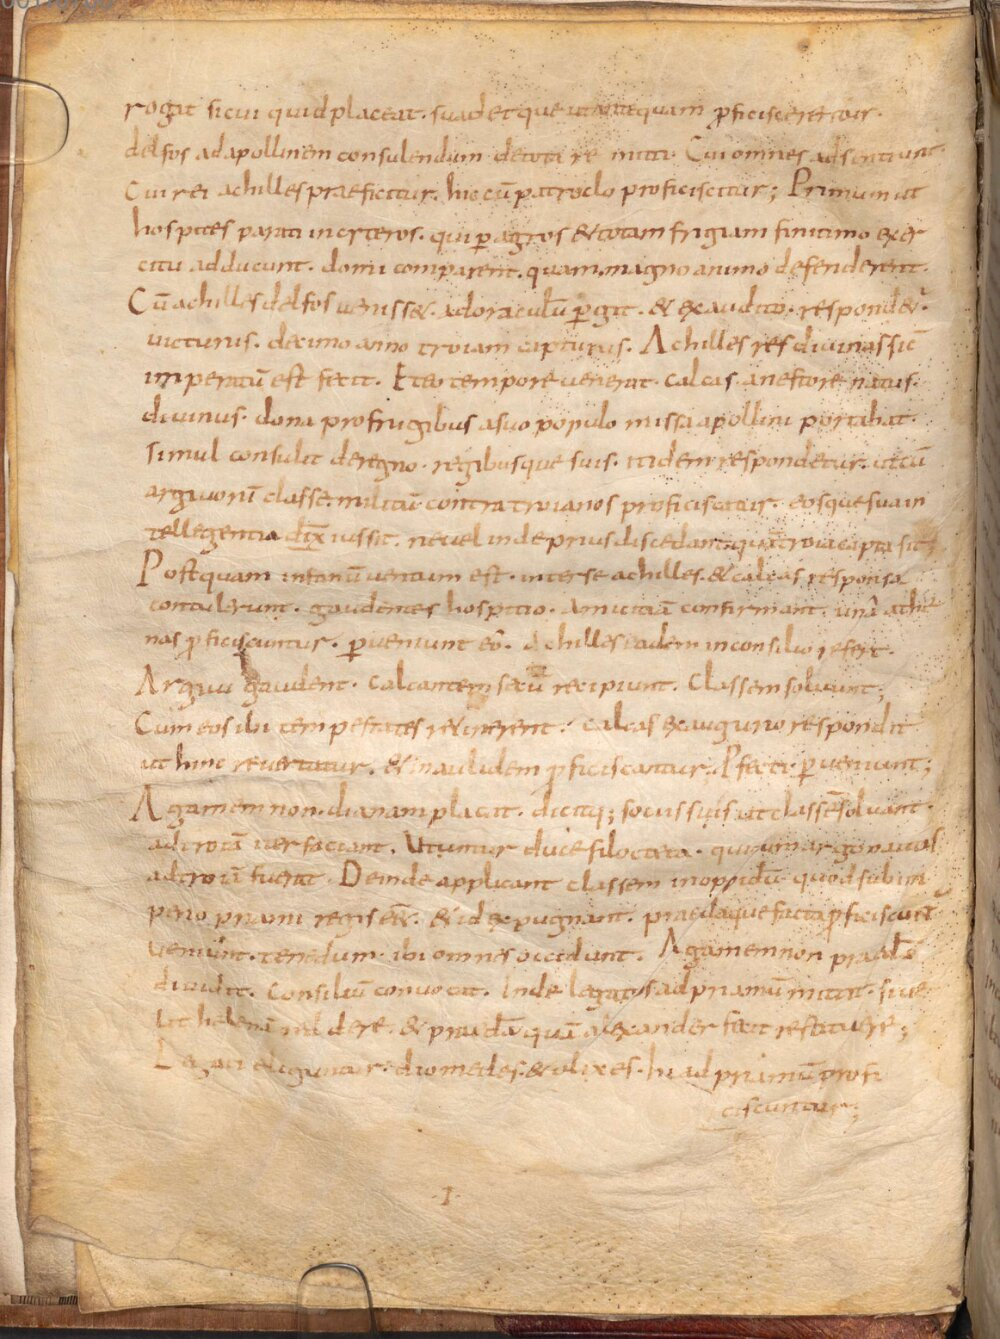 rogit sicui quid placeat. suadet que ut antequam ꝓficiscerentur.
delfos ad apollinem consulendum de tota re mitti. Cui omnes adsentiunt.
Cui rei achilles praeficitur. hic cū patroclo proficiscitur; Primum ut
hospites parati in ceteros. qui ꝑ agros & totam frigiam finitimo exer
citu adducunt. domi comparent. quam magno animo defenderent.
Cū achilles delfos uenisset. ad oraculū ꝑgit. & ex audito. respondet̄.
uicturus. decimo anno troiam capturus. Achilles res diuinas sic̄
imperatū est fecit. Et eo tempore uenerat. calcas. a nestore natus.
diuinus. dona pro frugibus a suo populo missa apollini portabat.
simul consulit de regno. regibusque suis. itidem respondetur. ut cū
arguorū classe militū contra troianos proficiscatur. eosque sua in
tellegentia iussit. ne uel inde prius discedant. quā troia capta sit;
Postquam in fanū uentum est. inter se achilles. & calcas responsa
contulerunt. gaudentes hospitio. amicitiā confirmant. unā athe
nas ꝓficiscuntur. ꝑueniunt eō. Achilles eadem in consilio refert.
Arguui gaudent. Calcantem secū recipiunt. Classem soluunt;
Cum eos ibi tempestates retinerent. calcas ex augurio respondit
ut hinc reuertatur. & in aulidem ꝓficiscantur. Pfecti ꝑueniunt;
Agamemnon. dianam placat. dicitq; sociis suis ut classē soluant.
ad troiā iter faciant. Utuntur duce filocteta. qui cum argonauas
ad troiā fuerat. Deinde applicant classem in oppidū quod sub im
perio priami regis eēt. & id expugnant. praedaque facta ꝓficiscunt̄
ueniunt. tenedum. ibi omnes occidunt. Agamemnon praedā
diuidit. consiliū conuocat. Inde legatos ad priamū mittit. si ue
lit helenā reddere. & praedā quā alexander fecit restituere;
Legati eliguntur. diomedes. & olixes. hi ad priamū profi
ciscuntur;
.I.